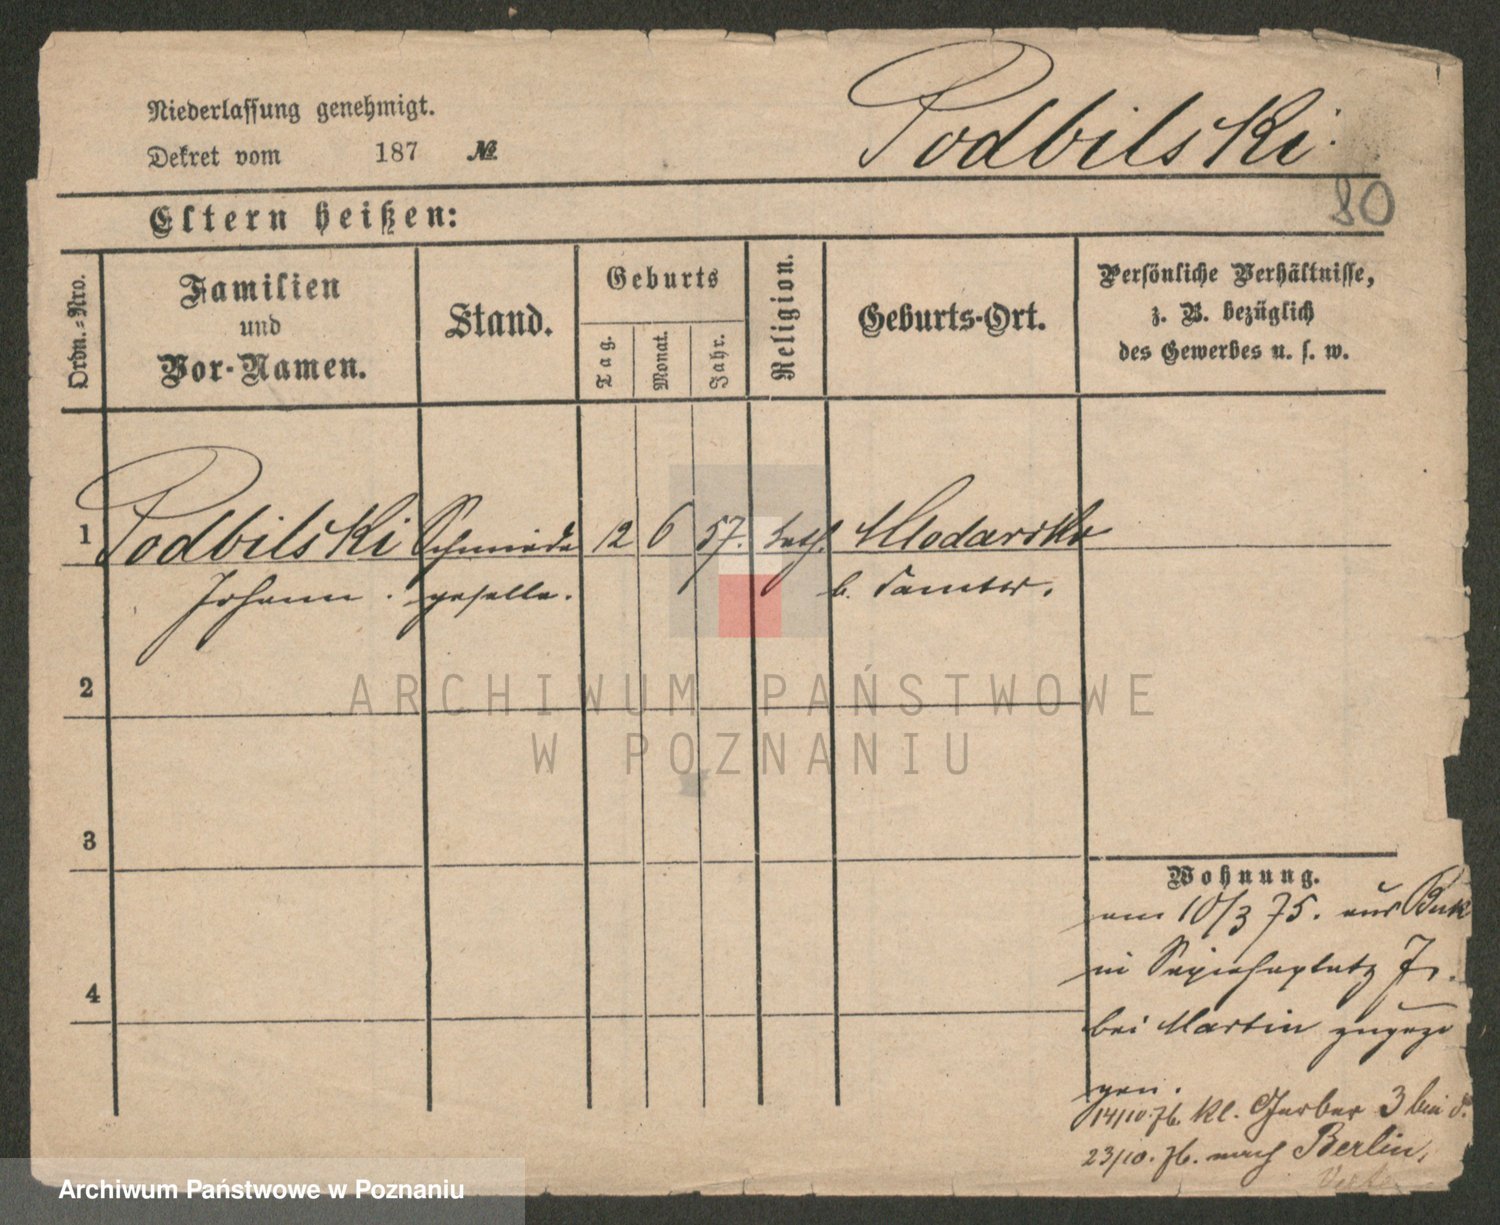 Niederlassung genehmigt.
Podbilski.
Dekret vom 187 №
80
Eltern heißen:
Ordn.=Nro.
Familien
und
Vor-Namen.
Stand.
Geburts
Tag.
Monat.
Jahr.
Religion.
Geburts-Ort.
Persönliche Verhältnisse,
z. B. bezüglich
des Gewerbes u. s. w.
1 Podbilski Schmiede 12 6 57. kath. Mlodarsko
Johann. geselle. b. Samter.
2
3
4
Wohnung.
am 10/3 75. aus Buk
in Sapiehaplatz 7.
bei Martin zugezo
gen.
14/10. 76. Kl. Gerber 3 bei
23/10. 76. nach Berlin,
ARCHIWUM PAŃSTWOWE
W POZNANIU
Archiwum Państwowe w Poznaniu